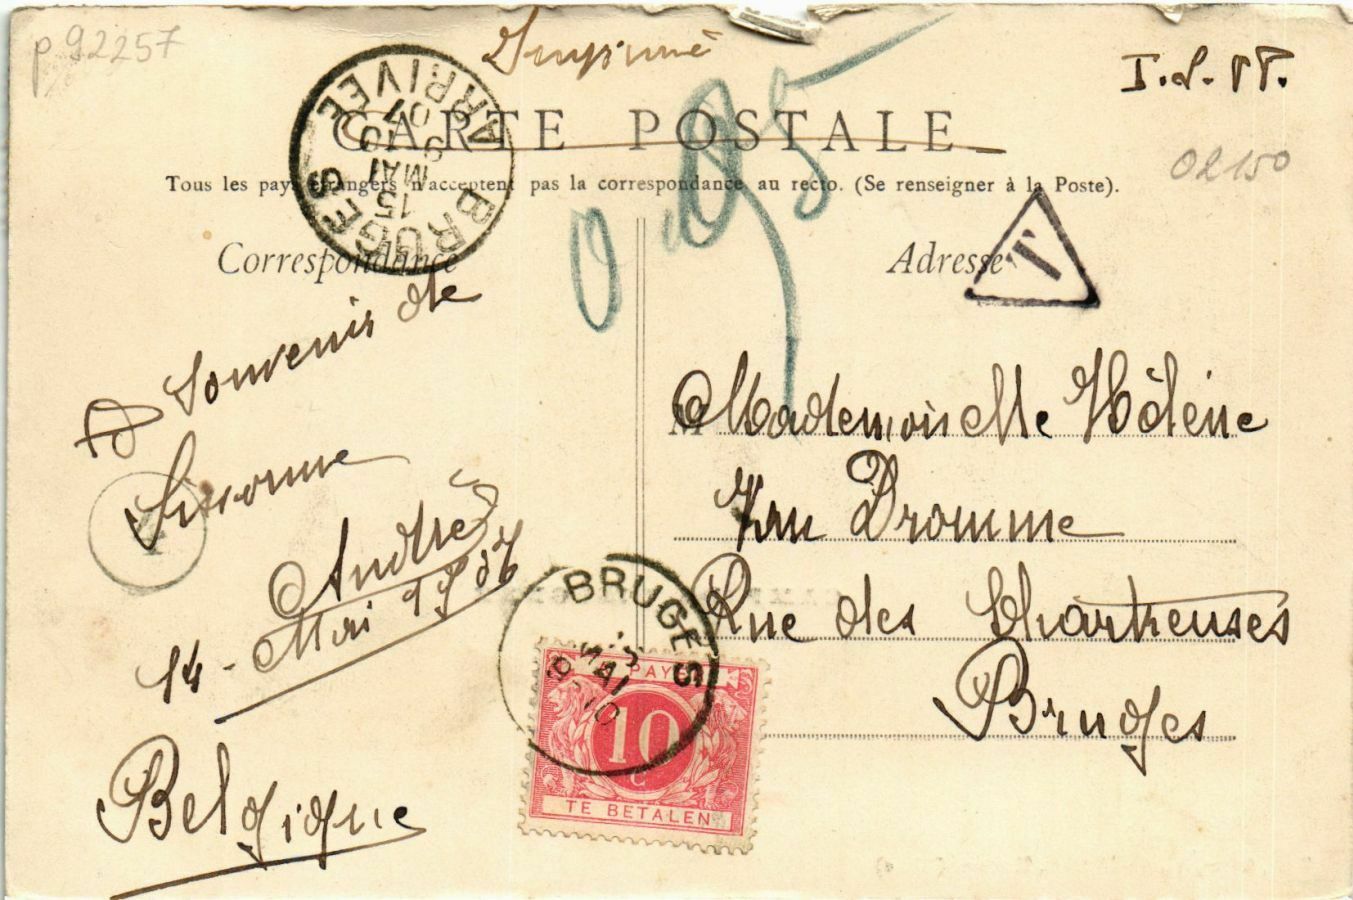 p 92257
Imprimé
I.L.PP.
CARTE POSTALE
02150
Tous les pays étrangers n'acceptent pas la correspondance au recto. (Se renseigner à la Poste).
BRUGES
15
MAI
9 10
07
ARRIVÉE
0,05
Correspondance
Adresse
T
Souvenir de
Sissonne
André
14 - Mai 1907
Belgique
M Mademoiselle Hélène
Van Dromme
Rue des Chartreuses
Bruges
BRUGES
MAI
A PAYER
10
C
TE BETALEN